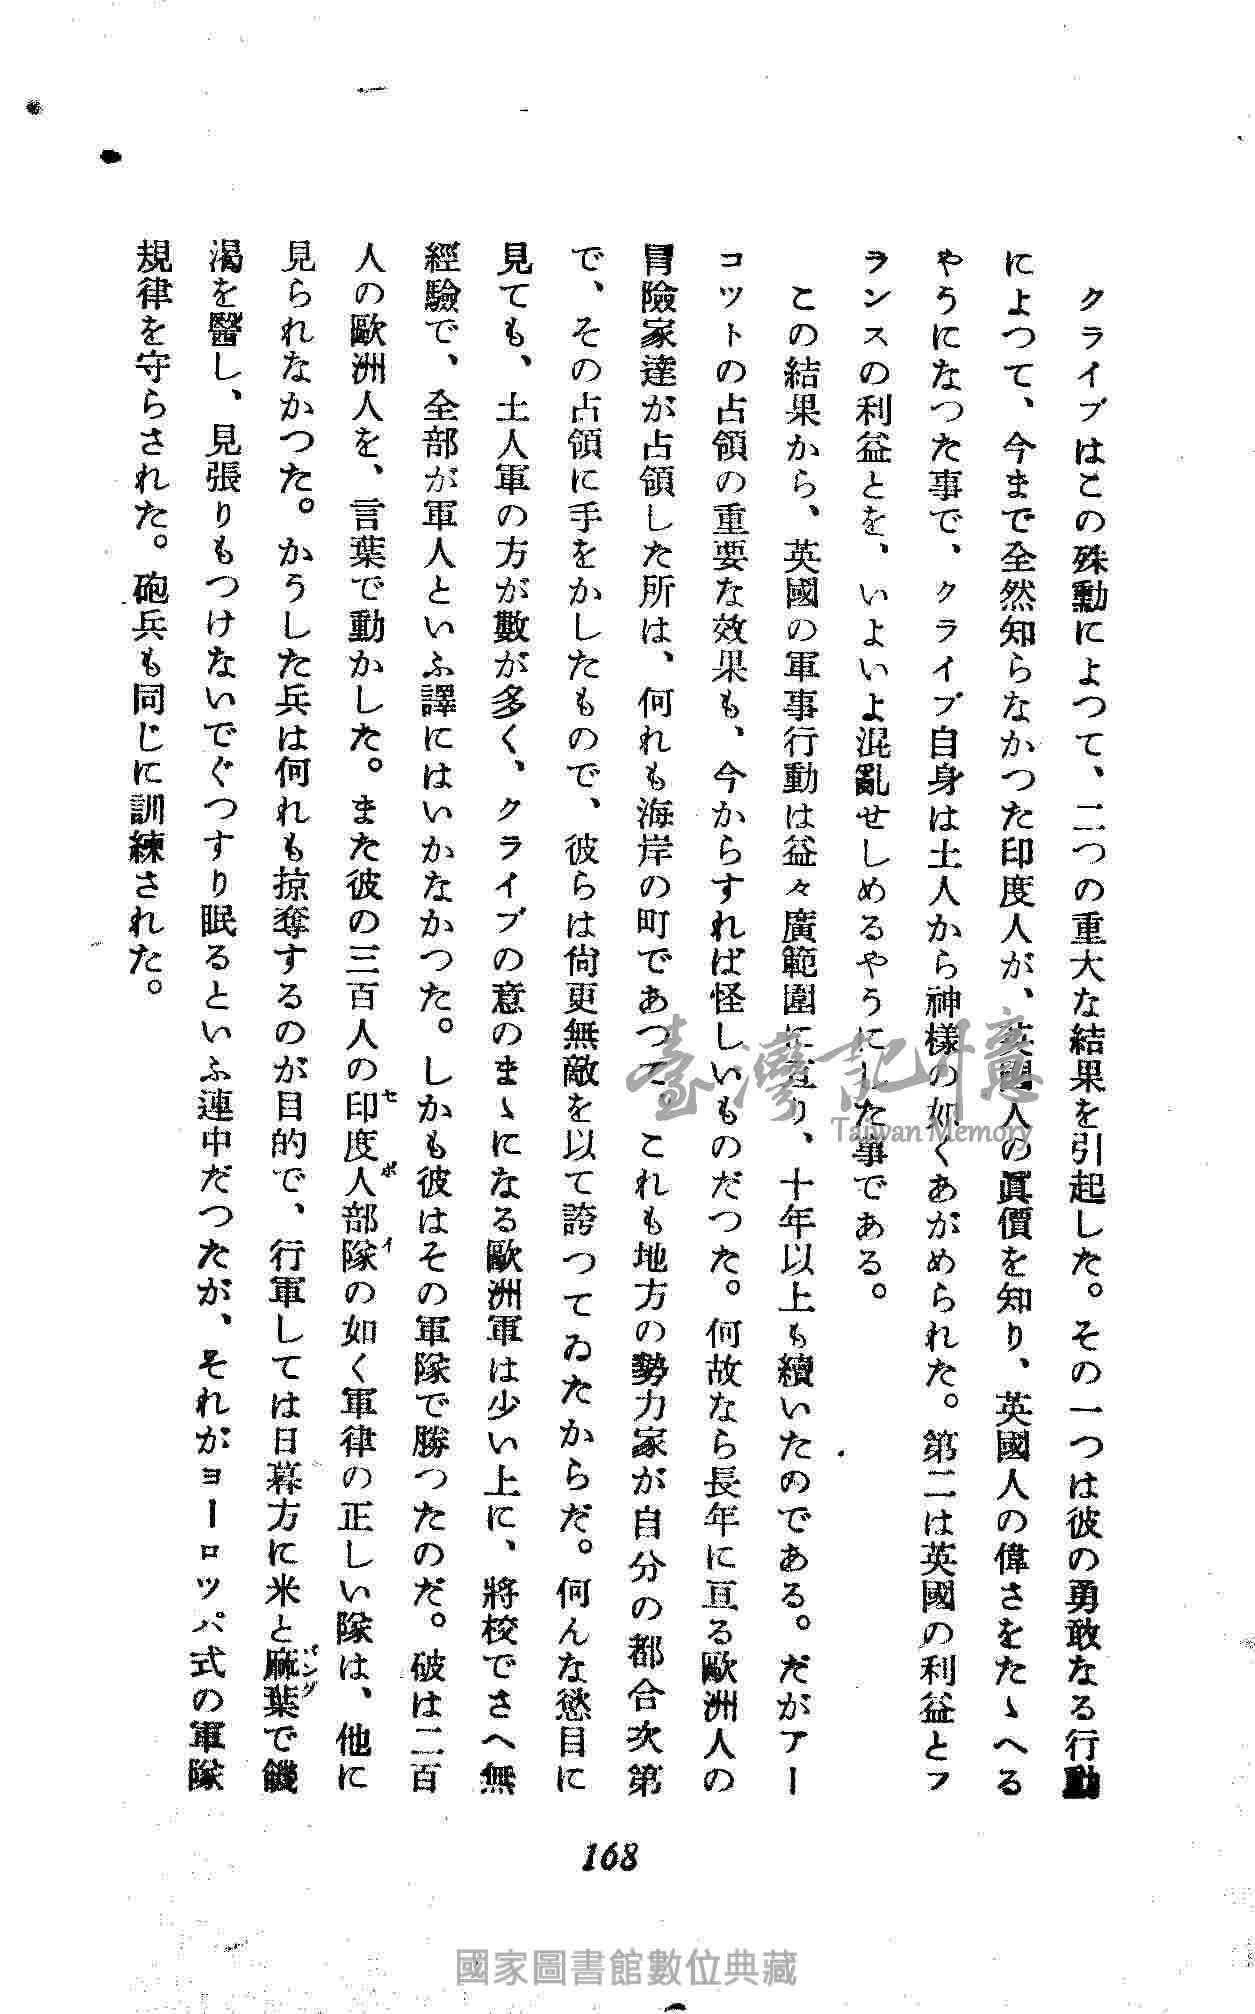 クライブはこの殊勳によつて、二つの重大な結果を引起した。その一つは彼の勇敢なる行動
によつて、今まで全然知らなかつた印度人が、英國人の眞價を知り、英國人の偉さをたゝへる
やうになつた事で、クライブ自身は土人から神様の如くあがめられた。第二は英國の利益とフ
ランスの利益とを、いよいよ混亂せしめるやうにした事である。
この結果から、英國の軍事行動は益々廣範圍に亘り、十年以上も續いたのである。だがアー
コツトの占領の重要な效果も、今からすれば怪しいものだつた。何故なら長年に亘る歐洲人の
冒險家達が占領した所は、何れも海岸の町であつて、これも地方の勢力家が自分の都合次第
で、その占領に手をかしたもので、彼らは尙更無敵を以て誇つてゐたからだ。何んな慾目に
見ても、土人軍の方が數が多く、クライブの意のまゝになる歐洲軍は少い上に、將校でさへ無
經驗で、全部が軍人といふ譯にはいかなかつた。しかも彼はその軍隊で勝つたのだ。破は二百
人の歐洲人を、言葉で動かした。また彼の三百人の印度人部隊の如く軍律の正しい隊は、他に
セポイ
見られなかつた。かうした兵は何れも掠奪するのが目的で、行軍しては日暮方に米と麻葉で饑
バング
渴を醫し、見張りもつけないでぐつすり眠るといふ連中だつたが、それがヨーロッパ式の軍隊
規律を守らされた。砲兵も同じに訓練された。
168
臺灣記憶
Taiwan Memory
國家圖書館數位典藏